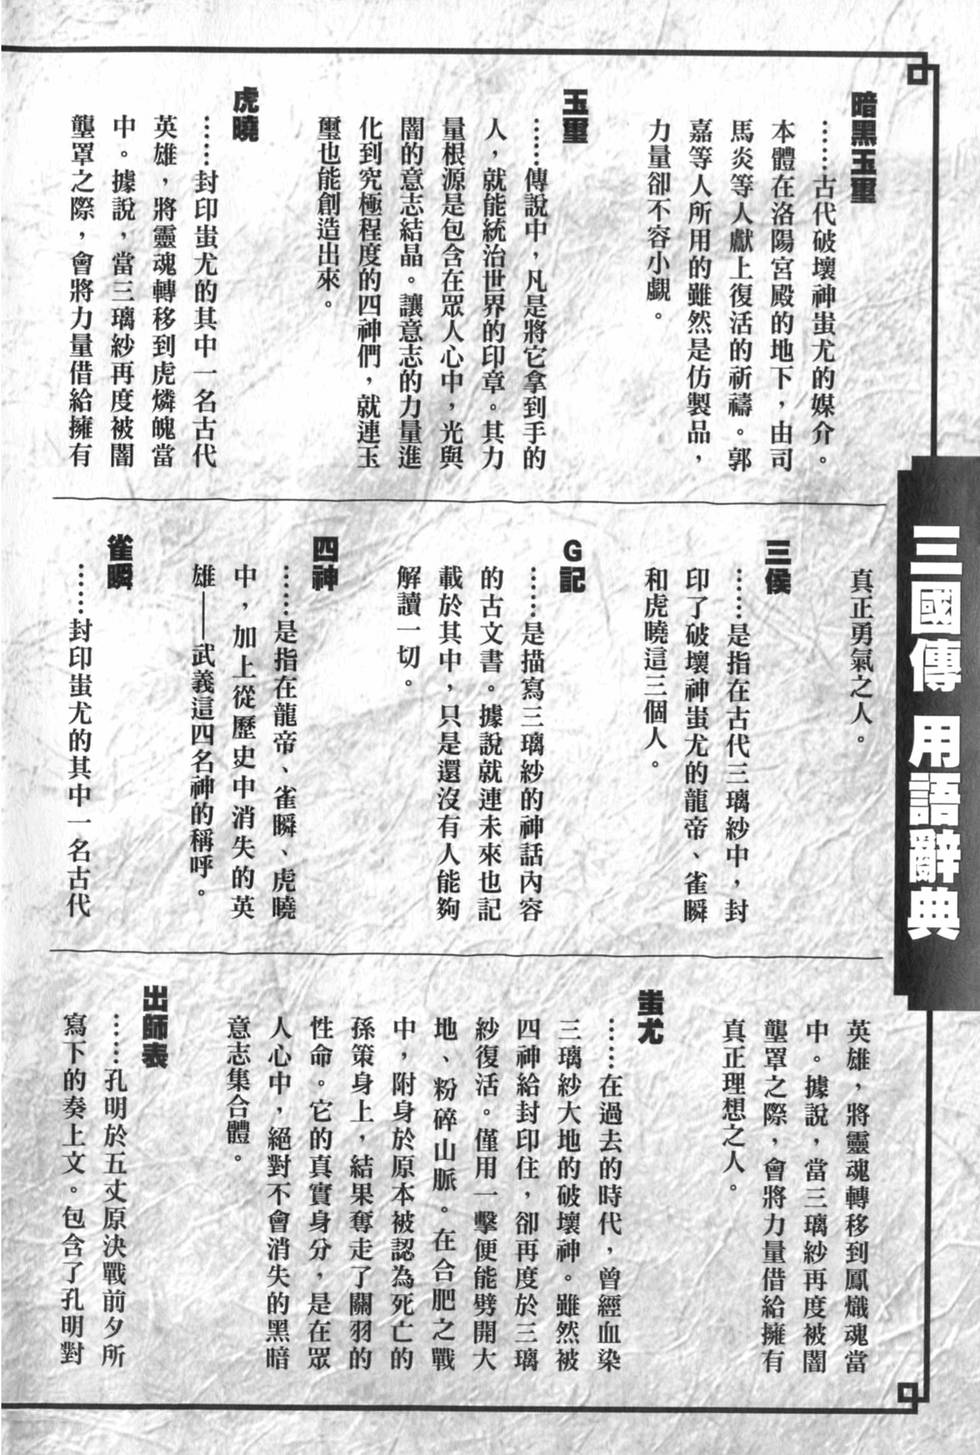 三國傳 用語辭典
暗黑玉璽
……古代破壞神蚩尤的媒介。
本體在洛陽宮殿的地下，由司
馬炎等人獻上復活的祈禱。郭
嘉等人所用的雖然是仿製品，
力量卻不容小覷。
玉璽
……傳說中，凡是將它拿到手的
人，就能統治世界的印章。其力
量根源是包含在眾人心中，光與
闇的意志結晶。讓意志的力量進
化到究極程度的四神們，就連玉
璽也能創造出來。
虎曉
……封印蚩尤的其中一名古代
英雄，將靈魂轉移到虎燐魄當
中。據說，當三璃紗再度被闇
壟罩之際，會將力量借給擁有
真正勇氣之人。
三侯
……是指在古代三璃紗中，封
印了破壞神蚩尤的龍帝、雀瞬
和虎曉這三個人。
G記
……是描寫三璃紗的神話內容
的古文書。據說就連未來也記
載於其中，只是還沒有人能夠
解讀一切。
四神
……是指在龍帝、雀瞬、虎曉
中，加上從歷史中消失的英
雄——武義這四名神的稱呼。
雀瞬
……封印蚩尤的其中一名古代
英雄，將靈魂轉移到鳳熾魂當
中。據說，當三璃紗再度被闇
壟罩之際，會將力量借給擁有
真正理想之人。
蚩尤
……在過去的時代，曾經血染
三璃紗大地的破壞神。雖然被
四神給封印住，卻再度於三璃
紗復活。僅用一擊便能劈開大
地、粉碎山脈。在合肥之戰
中，附身於原本被認為死亡的
孫策身上，結果奪走了關羽的
性命。它的真實身分，是在眾
人心中，絕對不會消失的黑暗
意志集合體。
出師表
……孔明於五丈原決戰前夕所
寫下的奏上文。包含了孔明對